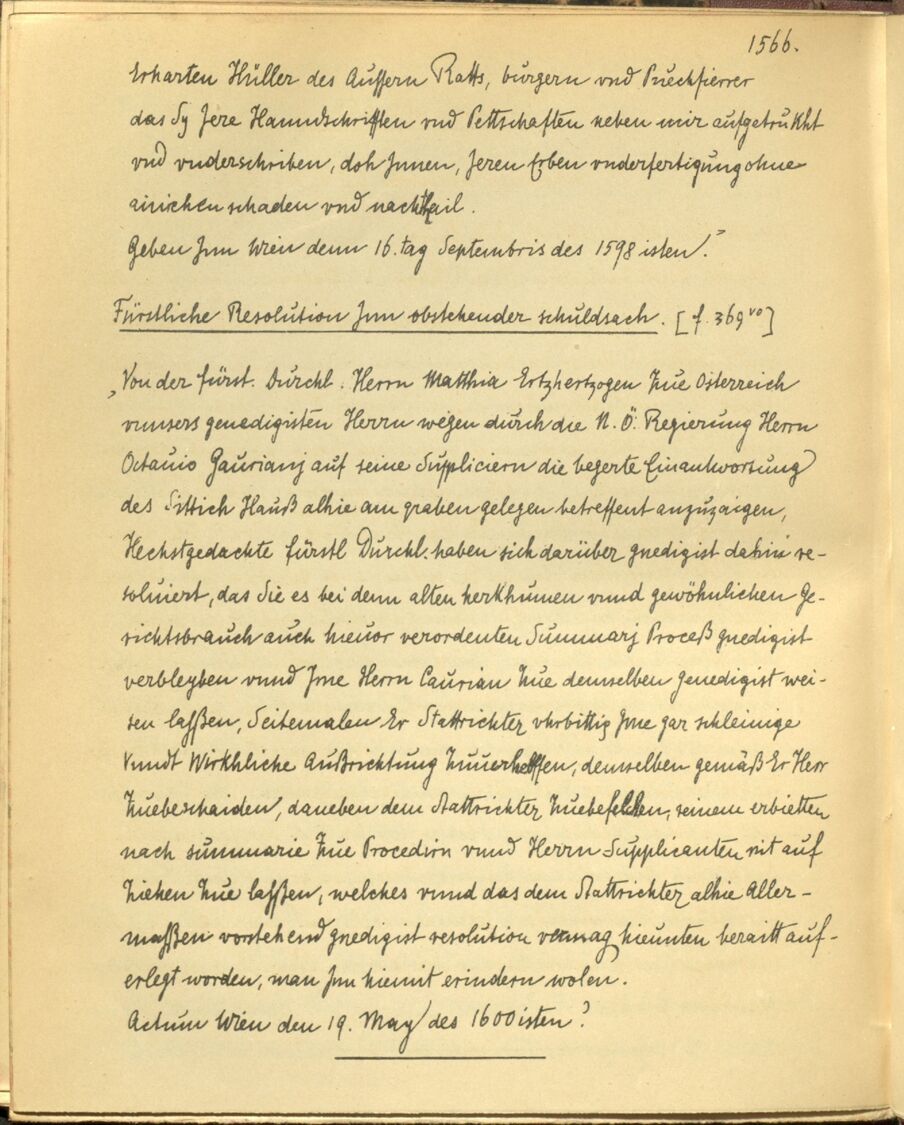 1566.
Erharten Hüller des Äussern Ratts, burgern vnd Puechfierer
das Sy Jere Hanndschrifften vnd Pettschafften neben mir aufgetrukht
vnd vnderschriben, doh Jnnen, Jeren Erben vnderfertigung ohne
ainichen schaden vnd nachthail.
Geben Jnn Wien denn 16. tag Septembris des 1598isten."
Fürstliche Resolution Jnn obstehender schuldsach. [f. 369vo]
„Von der fürst. Durchl. Herrn Matthia Ertzhertzogen Zue Osterreich
vnnsers genedigisten Herrn wegen durch die N. Ö. Regierung Herrn
Octauio Gaurianj auf seine Suppliciern die begerte Einantworsung
des Sittich Hauß alhie am graben gelegen betreffent anzuzaigen,
Hechstgedachte fürstl Durchl. haben sich darüber gnedigist dahin re-
soluiert, das Sie es bei denn alten herkhumen vnnd gewöhnlichen Ge-
richtsbrauch auch hieuor verordenten Summarj Proceß gnedigist
verbleyben vnnd Jme Herrn Caurian Zue demselben genedigist wei-
sen laßsen, Seitemalen Er Stattrichter vhrbittig Jme gar schleinige
Vnndt Wirkhliche Außrichtung Zuuerhelffen, demselben gemäß Er Herr
Zuebeschaiden, daneben dem Stattrichter Zuebefelchen, seinem erbietten
nach summarie Zue Procedirn vnnd Herrn Supplicanten nit auf
Ziehen Zue laßsen, welches vnnd das dem Stattrichter alhie Aller-
maßsen vorstehend gnedigist resolution vermag hieunten beraitt auf-
erlegt worden, man Jnn hiemit erindern wolen.
Actum Wien den 19. May des 1600isten."